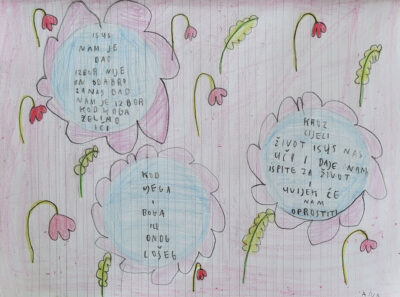 ISUS
NAM JE
DAO
IZBOR NIJE
ZA NAS DAO
NAM JE IZBOR
KOD KOGA
ŽELIMO
IĆI
KOD
NJEGA
I
BOGA
ILI
ONOG
LOŠEG
KROZ
CIJELI
ŽIVOT ISUS NAS
UČI I DAJE NAM
ISPITE ZA ŽIVOT
I
UVIJEK ĆE
NAM
OPROSTITI